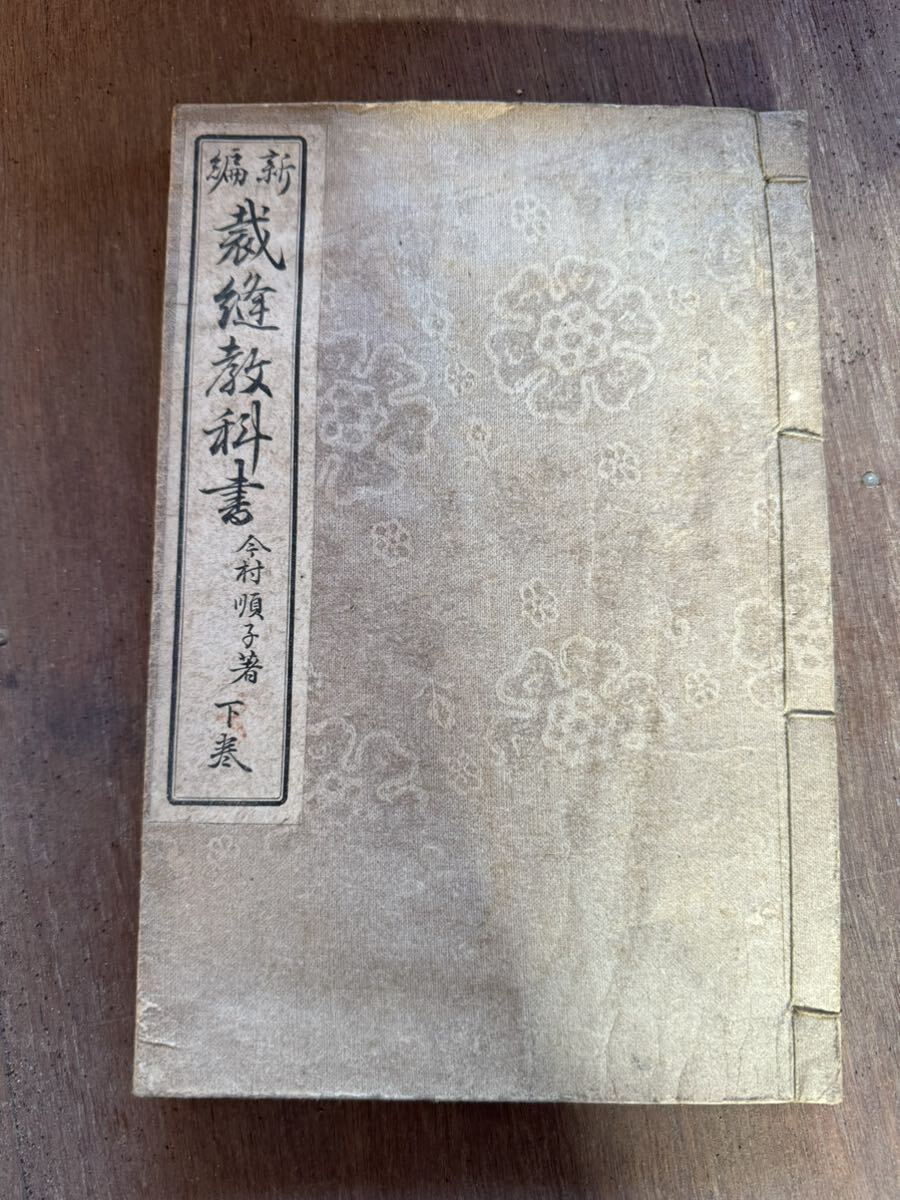 新編
裁縫教科書
今村順子著
下巻